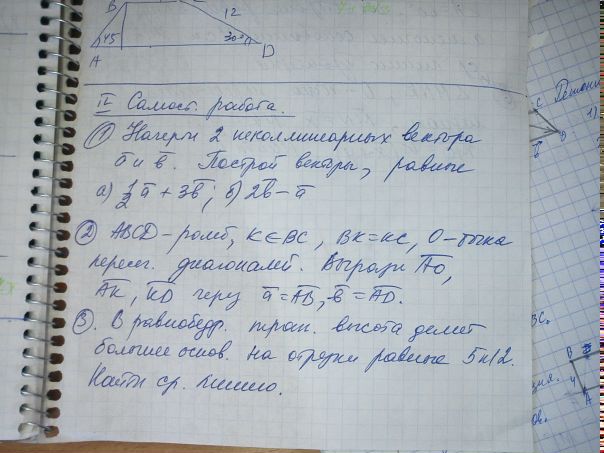 B 12
45 30°
A D
II Самост. работа.
① Начерти 2 неколлинеарных вектора
a̅ и b̅. Построй векторы, равные
а) 1/2 a̅ + 3b̅; б) 2b̅ - a̅
② ABCD - ромб, K∈BC, BK=KC, O - точка
перес. диагоналей. Вырази A̅O̅,
A̅K̅, K̅D̅ через a̅=A̅B̅, b̅=A̅D̅.
③. В равнобедр. трап. высота делит
большее основ. на отрезки равные 5 и 12.
Найти ср. линию.